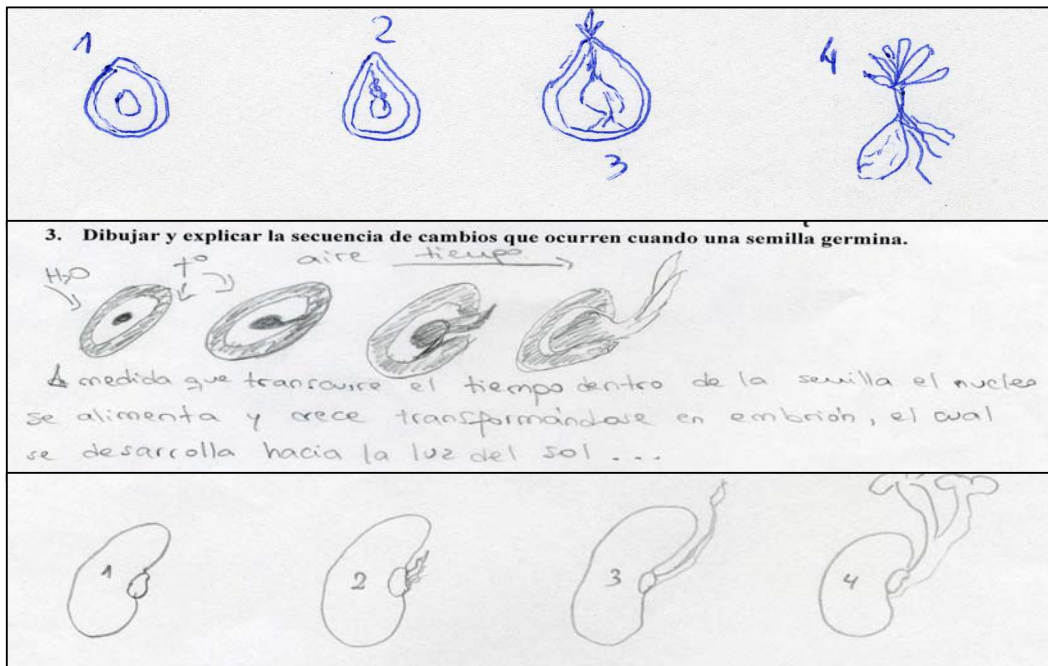 1 2 3 4
3. Dibujar y explicar la secuencia de cambios que ocurren cuando una semilla germina.
H₂O t° aire tiempo
A medida que transcurre el tiempo dentro de la semilla el nucleo
se alimenta y crece transformándose en embrión, el cual
se desarrolla hacia la luz del sol ...
1 2 3 4